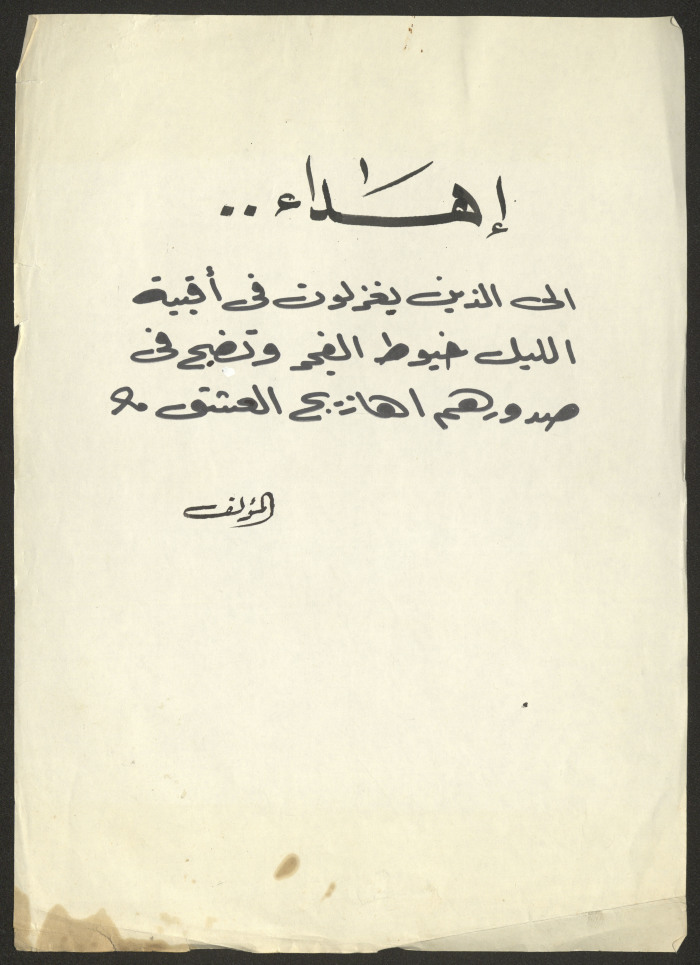 إهداء ..
الى الذين يغزلون في أقبية
الليل خيوط الفجر وتضج في
صدورهم اهازيج العشق
المؤلف